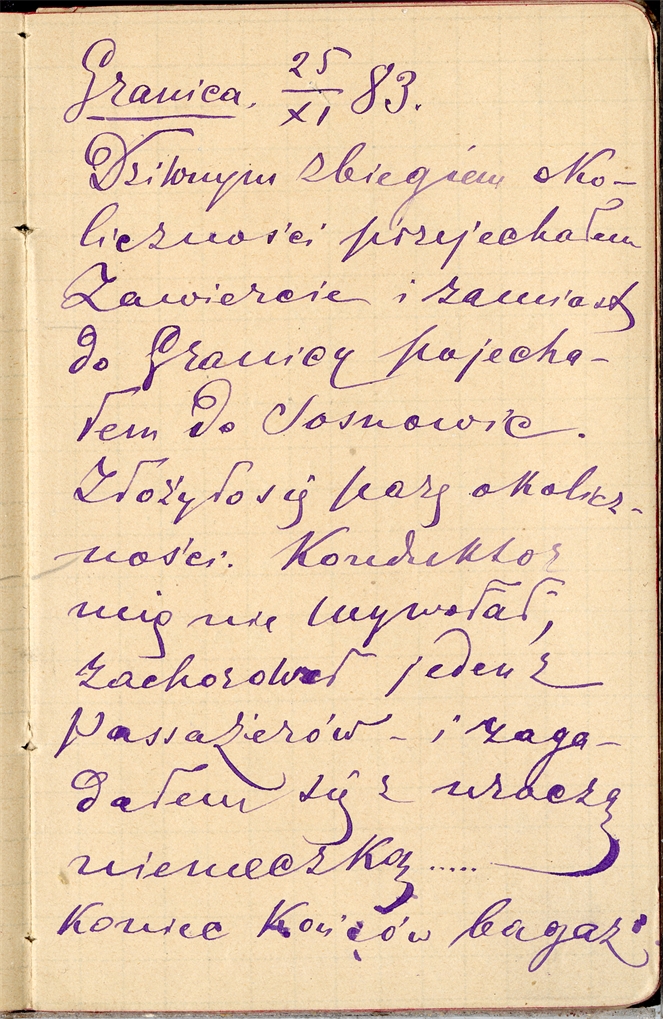 Granica. 25/XI 83.
Dziwnym zbiegiem oko-
liczności przejechałem
Zawiercie i zamiast
do Granicy pojecha-
łem do Sosnowic.
Złożyło się parę okolicz-
ności. Konduktor
mię nie wywołał,
zachorował jeden z
passażerów - i zaga-
dałem się z uroczą
niemeczką.....
koniec końców bagaż